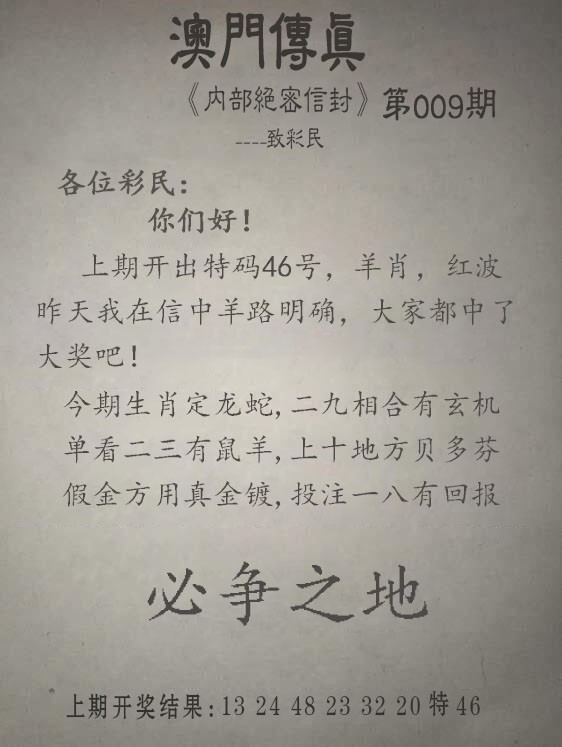 澳門傳眞
《内部絕密信封》第009期
----致彩民
各位彩民:
你们好!
上期开出特码46号，羊肖，红波
昨天我在信中羊路明确，大家都中了
大奖吧!
今期生肖定龙蛇,二九相合有玄机
单看二三有鼠羊,上十地方贝多芬
假金方用真金镀,投注一八有回报
必争之地
上期开奖结果:13 24 48 23 32 20 特 46